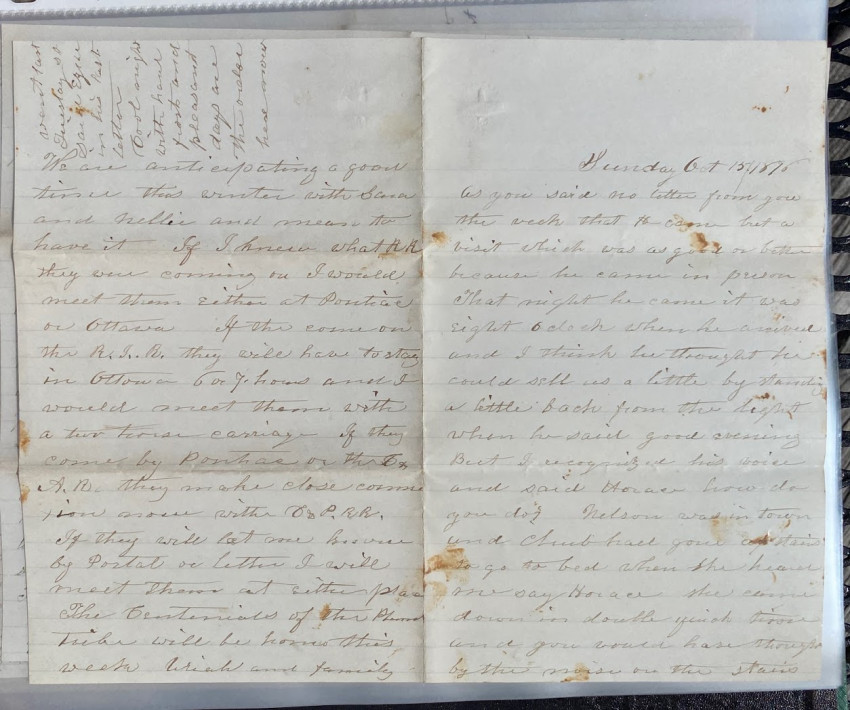 Sunday Oct 15/187
As you said no letter from you
the week that H came but a
visit which was as good or better
because he came in person
That night he came it was
Eight Oclock when he arived
and I think he thought he
could sell us a little by standing
a little back from the light
when he said good evening
But I recognized his voice
and said Horace how do
you do? Nelson was in town
and Chub had gone up stairs
to go to bed when she heard
me say Horace she came
down in double quick time
and you would have thought
by the noise on the stairs
We are anticipating a good
time this winter with Sara
and Nellie and mean to
have it If I knew what RR
they were coming on I would
meet them either at Pontiac
or Ottawa If the come on
the R.I.R. they will have to stay
in Ottowa 6 or 7 hours and I
would meet them with
a two horse carriage If they
come by Pontiac or the C &
A.R. they make close connec
tion now withe C & P. RR.
If they will let me know
by Postal or letter I will
meet them at Either place
The Centenials of the Plumb
tribe will be home this
week Uriah and family
went last
Tuesday so
said
in his last
letter
Cool night
with hard
frost and
pleasant
days are
the order
here now